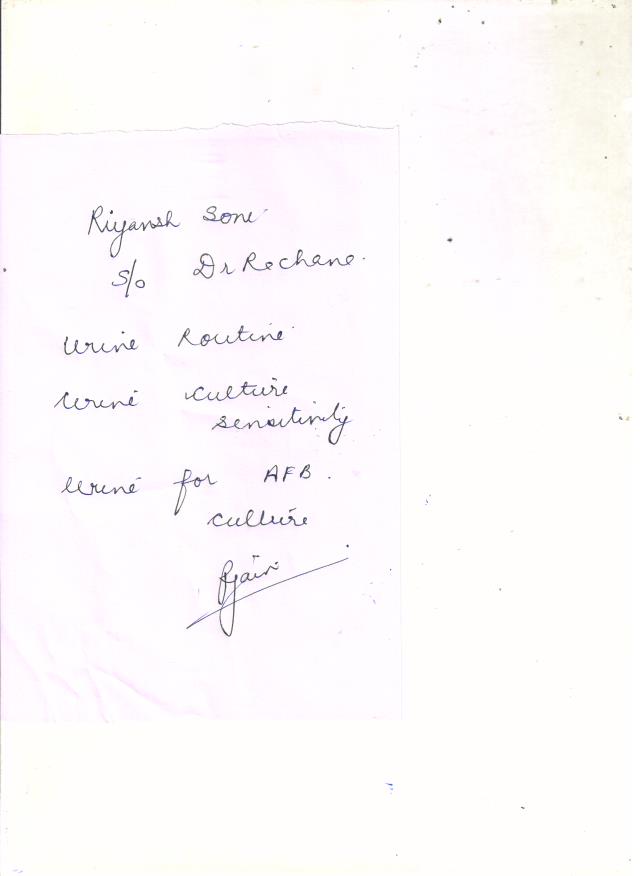 Riyansh Soni
S/o Dr Rechane.
Urine Routine
Urine culture
sensitivity
Urine for AFB.
culture
Rjain